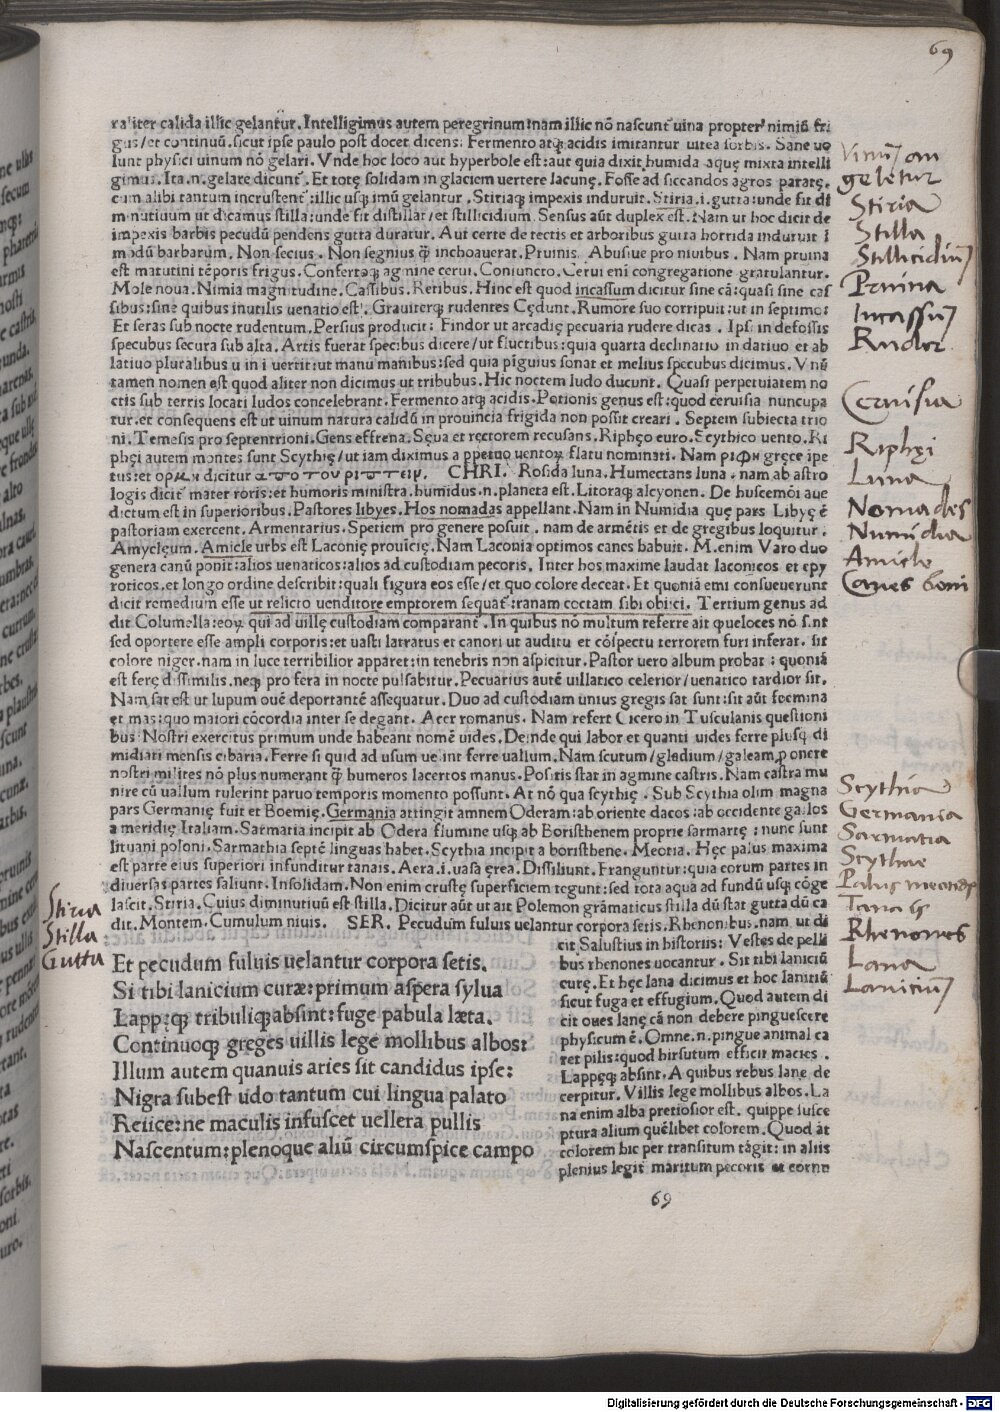 69
raliter calida illic gelantur. Intelligimus autem peregrinum: nam illic nõ nascunt̃ uina propter nimiũ fri
gus/et continuũ. sicut ipse paulo post docet dicens: Fermento atq; acidis imitantur uitea sorbis. Sane uo
lunt physici uinum nõ gelari. Vnde hoc loco aut hyperbole est: aut quia dixit humida aquę mixta intelli
gimus. Ita.n. gelare dicunt̃. Et totę solidam in glaciem uertere lacunę. Fossę ad siccandos agros paratę.
cum alibi tantum incrustent̃: illic usq; imũ gelantur. Stiriaq; impexis induruit. Stiria.i. gutta: unde fit di
minutiuum ut dicamus stilla: unde fit distillat/et stillicidium. Sensus aũt duplex est. Nam ut hoc dicit de
impexis barbis pecudũ pendens gutta duratur. Aut certe de tectis et arboribus gutta horrida induruit ĩ
modũ barbarum. Non secius. Non segnius q̃ inchoauerat. Pruinis. Abusiue pro niuibus. Nam pruina
est matutini tẽporis frigus. Confertoq; agmine cerui. Coniuncto. Cerui eni congregatione gratulantur.
Mole noua. Nimia magnitudine. Cassibus. Retibus. Hinc est quod incassum dicitur sine cã: quasi sine cas
sibus: sine quibus inutilis uenatio est. Grauiterq; rudentes Cędunt. Rumore suo corripuit: ut in septimo:
Et seras sub nocte rudentum. Persius producit: Findor ut arcadię pecuaria rudere dicas. Ipsi in defossis
specubus secura sub alta. Artis fuerat specibus dicere/ut fluctibus: quia quarta declinatio in datiuo et ab
latiuo pluralibus u in i uertit: ut manu manibus: sed quia pĩguius sonat et melius specubus dicimus. Vnũ
tamen nomen est quod aliter non dicimus ut tribubus. Hic noctem ludo ducunt. Quasi perpetuiatem no
ctis sub terris locati ludos concelebrant. Fermento atq; acidis. Potionis genus est: quod ceruisia nuncupa
tur. et consequens est ut uinum natura calidũ in prouincia frigida non possit creari. Septem subiecta trio
ni. Temesis pro septentrioni. Gens effrena. Sęua et rectorem recusans. Riphęo euro. Scythico uento. Ri
phęi autem montes sunt Scythię/ut iam diximus a ppetuo uentoꝝ flatu nominati. Nam ριφη gręce ĩpe
tus: et ορμη dicitur απο του ριπτειν. CHRI. Rosida luna. Humectans luna. nam ab astro
logis dicit̃ mater roris: et humoris ministra. humidus.n. planeta est. Litoraq; alcyonen. De huscemõi aue
dictum est in superioribus. Pastores libyes. Hos nomadas appellant. Nam in Numidia quę pars Libyę ẽ
pastoriam exercent. Armentarius. Speciem pro genere posuit. nam de armẽtis et de gregibus loquitur.
Amyclęum. Amicle urbs est Laconię prouĩcię. Nam Laconia optimos canes habuit. M.enim Varo duo
genera canũ ponit: alios uenaticos: alios ad custodiam pecoris. Inter hos maxime laudat laconicos et epy
roticos. et longo ordine describit: quali figura eos esse/et quo colore deceat. Et quoniã emi consueuerunt
dicit remedium esse ut relicto uenditore emptorem sequat̃: ranam coctam sibi obiici. Tertium genus ad
dit Columella: eoꝝ qui ad uillę custodiam comparant̃. In quibus nõ multum referre ait q̃ ueloces nõ sint
sed oportere esse ampli corporis: et uasti latratus et canori ut auditu et cõspectu terrorem furi inferat. sit
colore niger. nam in luce terribilior apparet: in tenebris non aspicitur. Pastor uero album probat: quoniã
est ferę dissimilis. neq; pro fera in nocte pulsabitur. Pecuarius autẽ uillatico celerior/uenatico tardior sit.
Nam sat est ut lupum ouẽ deportantẽ assequatur. Duo ad custodiam unius gregis sat sunt: sit aũt foemina
et mas: quo maiori cõcordia inter se degant. Acer romanus. Nam refert Cicero in Tusculanis questioni
bus: Nostri exercitus primum unde habeant nomẽ uides. Deinde qui labor et quanti uides ferre plusq; di
midiati mensis cibaria. Ferre si quid ad usum uelint ferre uallum. Nam scutum/gledium/galeam ponere
nostri milites nõ plus numerant q̃ humeros lacertos manus. Positis stat in agmine castris. Nam castra mu
nire cũ uallum tulerint paruo temporis momento possunt. At nõ qua scythię. Sub Scythia olim magna
pars Germanię fuit et Boemię. Germania attingit amnem Oderam: ab oriente dacos: ab occidente gallos
a meridię Italiam. Sarmatia incipit ab Odera flumine usq; ab Boristhenem proprie sarmartę: nunc sunt
lituani poloni. Sarmathia septẽ linguas habet. Scythia incipit a boristhene. Meotia. Hęc palus maxima
est parte eius superiori infunditur tanais. Aera.i. uasa ęrea. Dissiliunt. Franguntur: quia eorum partes in
diuersas partes saliunt. Insolidam. Non enim crustę superficiem tegunt: sed tota aqua ad fundũ usq; cõge
lascit. Stiria. Cuius diminutiuũ est stilla. Dicitur aũt ut ait Polemon grãmaticus stilla dũ stat gutta dũ ca
dit. Montem. Cumulum niuis. SER. Pecudum fuluis uelantur corpora setis. Rhenonibus. nam ut di
cit Salustius in historiis: Vestes de pelli
bus rhenones uocantur. Sit tibi laniciũ
curę. Et hęc lana dicimus et hoc laniciũ
sicut fuga et effugium. Quod autem di
cit oues lanę cã non debere pinguescere
physicum ẽ. Omne.n. pingue animal ca
ret pilis: quod hirsutum efficit macies.
Lappęq; absint. A quibus rebus lane de
cerpitur. Villis lege mollibus albos. La
na enim alba pretiosior est. quippe susce
ptura alium quẽlibet colorem. Quod ãt
colorem hic per transitum tãgit: in aliis
plenius legit maritum pecoris et cornu
Et pecudum fuluis uelantur corpora setis.
Si tibi lanicium curæ: primum aspera sylua
Lappæq; tribuliq; absint: fuge pabula læta.
Continuoq; greges uillis lege mollibus albos:
Illum autem quanuis aries sit candidus ipse:
Nigra subest udo tantum cui lingua palato
Reiice: ne maculis infuscet uellera pullis
Nascentum: plenoque aliũ circumspice campo
69
Vinũ an
geletur
Stiria
Stilla
Stillicidiũ
Pruina
Incassũ
Rudor
Ceruisia
Riphęi
Luna
Nomades
Numidia
Amicle
Canes boni
Scythia
Germania
Sarmatia
Scythie
Palus meotidis
Tanais
Rhenones
Lana
Laniciũ
Stiria
Stilla
Gutta
Digitalisierung gefördert durch die Deutsche Forschungsgemeinschaft - DFG